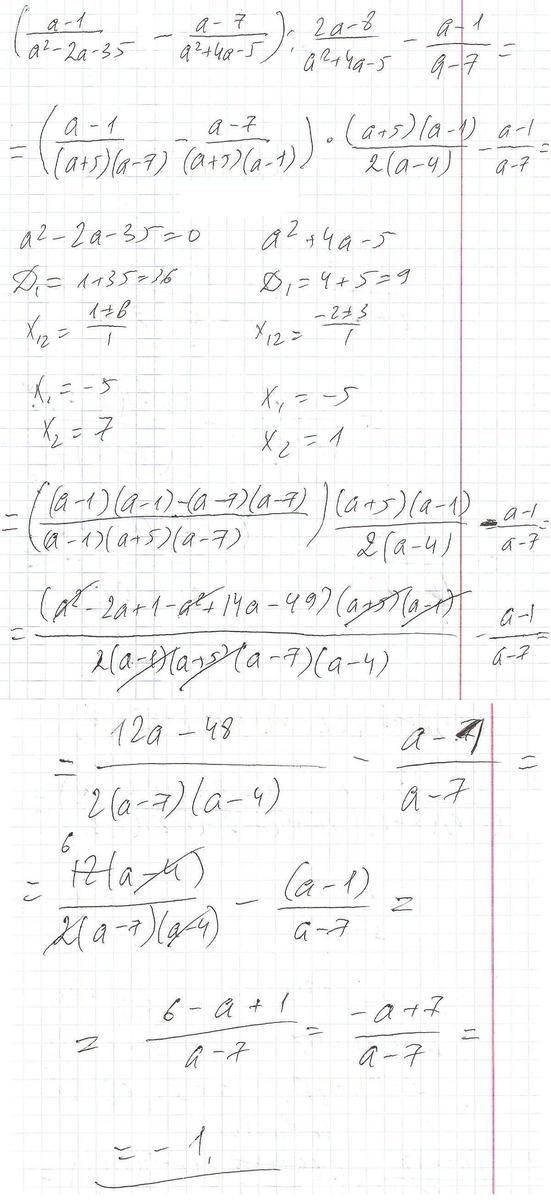 (a-1/a²-2a-35 - a-7/a²+4a-5) : 2a-8/a²+4a-5 - a-1/a-7 =
= (a-1/(a+5)(a-7) - a-7/(a+5)(a-1)) · (a+5)(a-1)/2(a-4) - a-1/a-7 =
a²-2a-35=0 a²+4a-5
D₁= 1+35=36 D₁= 4+5=9
x₁₂= 1±6/1 x₁₂= -2±3/1
x₁=-5 x₁=-5
x₂=7 x₂=1
= ((a-1)(a-1)-(a-7)(a-7)/(a-1)(a+5)(a-7)) (a+5)(a-1)/2(a-4) - a-1/a-7 =
= (a²-2a+1-a²+14a-49)(a+5)(a-1)/2(a-1)(a+5)(a-7)(a-4) - a-1/a-7 =
= 12a-48/2(a-7)(a-4) - a-1/a-7 =
= 6 12(a-4)/2(a-7)(a-4) - (a-1)/a-7 =
= 6-a+1/a-7 = -a+7/a-7 =
= -1.